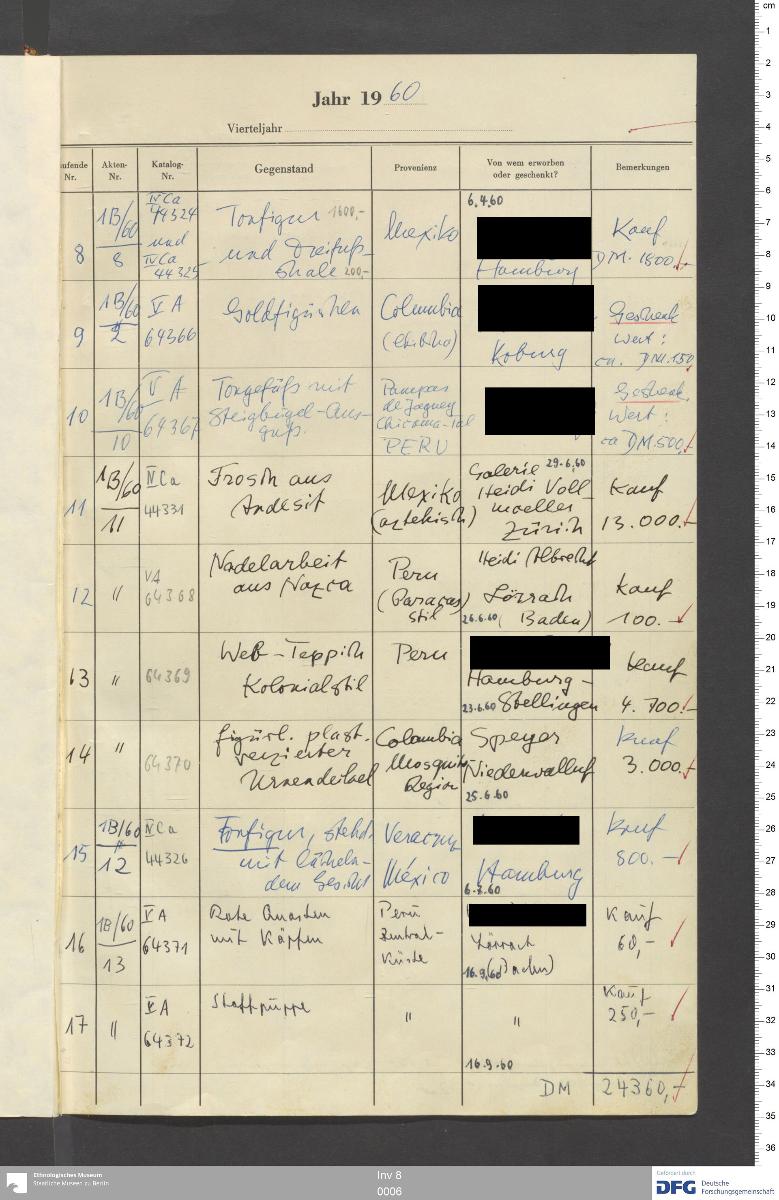 Jahr 1960
Vierteljahr
ufende Nr.
Akten-Nr.
Katalog-Nr.
Gegenstand
Provenienz
Von wem erworben oder geschenkt?
Bemerkungen
8
1B/60
8
IV Ca
44324
und
IV Ca
44325
Tonfigur 1600,-
und Dreifuß-
shale 200,-
Mexiko
6.4.60
Hamburg
Kauf
DM. 1800.-
9
1B/60
V A
64366
Goldfigürchen
Columbia
(Chibcha)
Koburg
Geschenk
Wert:
ca. DM.150
10
1B/60
10
V A
64367
Tongefäß mit
Steigbügel-Aus-
guß.
Pampas
de Jaguey
Chicama-Tal
PERU
Geschenk.
Wert:
ca DM.500,-
11
1B/60
11
IV Ca
44331
Frosch aus
Andesit
Mexiko
(aztekisch)
Galerie 29.6.60
Heidi Voll
moeller
Zürich
Kauf
13.000.-
12
"
VA
64368
Nadelarbeit
aus Nazca
Peru
(Paracas)
stil
Heidi Albrecht
Lörrach
26.6.60 (Baden)
Kauf
100.-
13
"
64369
Web-Teppich
Kolonialstil
Peru
Hamburg-
23.6.60 Stellingen
Kauf
4.700.-
14
"
64370
figürl. plast.
verzierter
Urnendeckel
Colombia
Mosquito
Region
Speyer
Niederwalluf
25.6.60
Kauf
3.000.-
15
1B/60
12
IV Ca
44326
Tonfigur, stehd.
mit lächeln-
dem Gesicht
Veracruz
México
Hamburg
Kauf
800.-
16
1B/60
13
V A
64371
Rote Quasten
mit Köpfen
Peru
Zentral-
Küste
Lörrach
16.9.60 (Baden)
Kauf
60,-
17
"
V A
64372
Stoffpuppe
"
"
16.9.60
Kauf
250,-
DM 24360,-
cm
1
2
3
4
5
6
7
8
9
10
11
12
13
14
15
16
17
18
19
20
21
22
23
24
25
26
27
28
29
30
31
32
33
34
35
36
Ethnologisches Museum
Staatliche Museen zu Berlin
Inv 8
0006
Gefördert durch
DFG Deutsche
Forschungsgemeinschaft